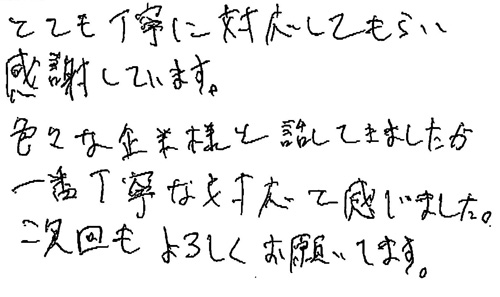 とても丁寧に対応してもらい
感謝しています。
色々な企業様と話してきましたが
一番丁寧な対応で感じました。
次回もよろしくお願いてます。